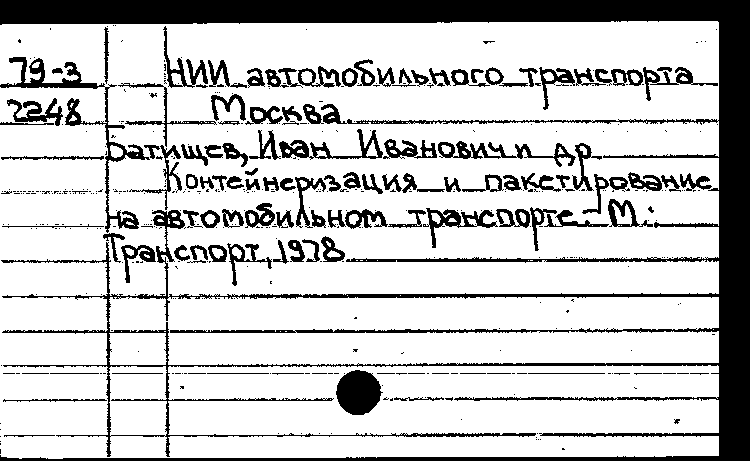 79-3 НИИ автомобильного транспорта
2248 Москва.
Батищев, Иван Иванович и др
Контейнеризация и пакетирование
на автомобильном транспорте.- М.:
Транспорт, 1978